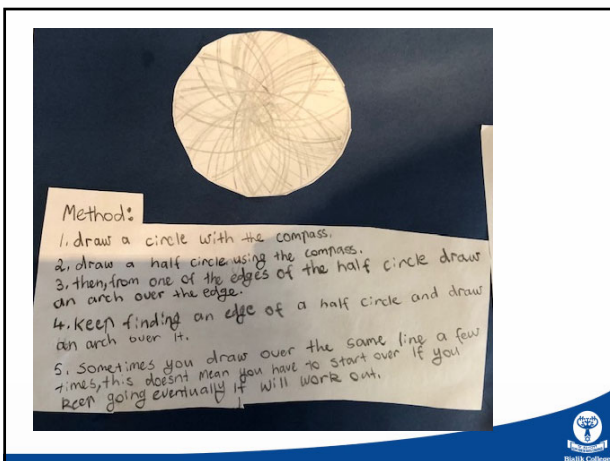 Method:
1. draw a circle with the compass.
2. draw a half circle using the compass.
3. then, from one of the edges of the half circle draw
an arch over the edge.
4. Keep finding an edge of a half circle and draw
an arch over it.
5. Sometimes you draw over the same line a few
times, this doesnt mean you have to start over If you
keep going eventually it will work out.
Bialik College